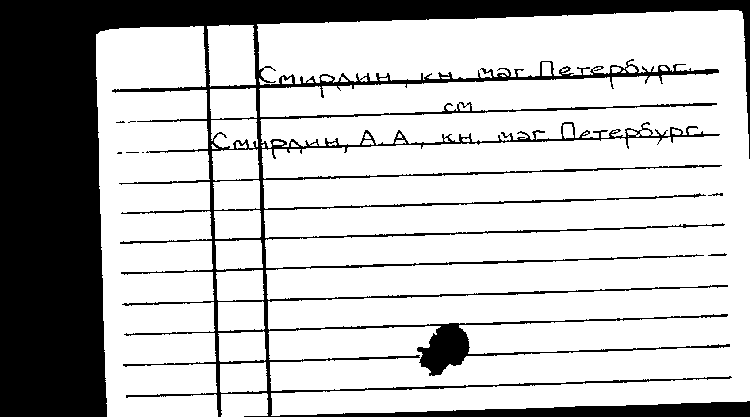 Смирдин, кн. маг. Петербург.
см
Смирдин, А.А., кн. маг Петербург.